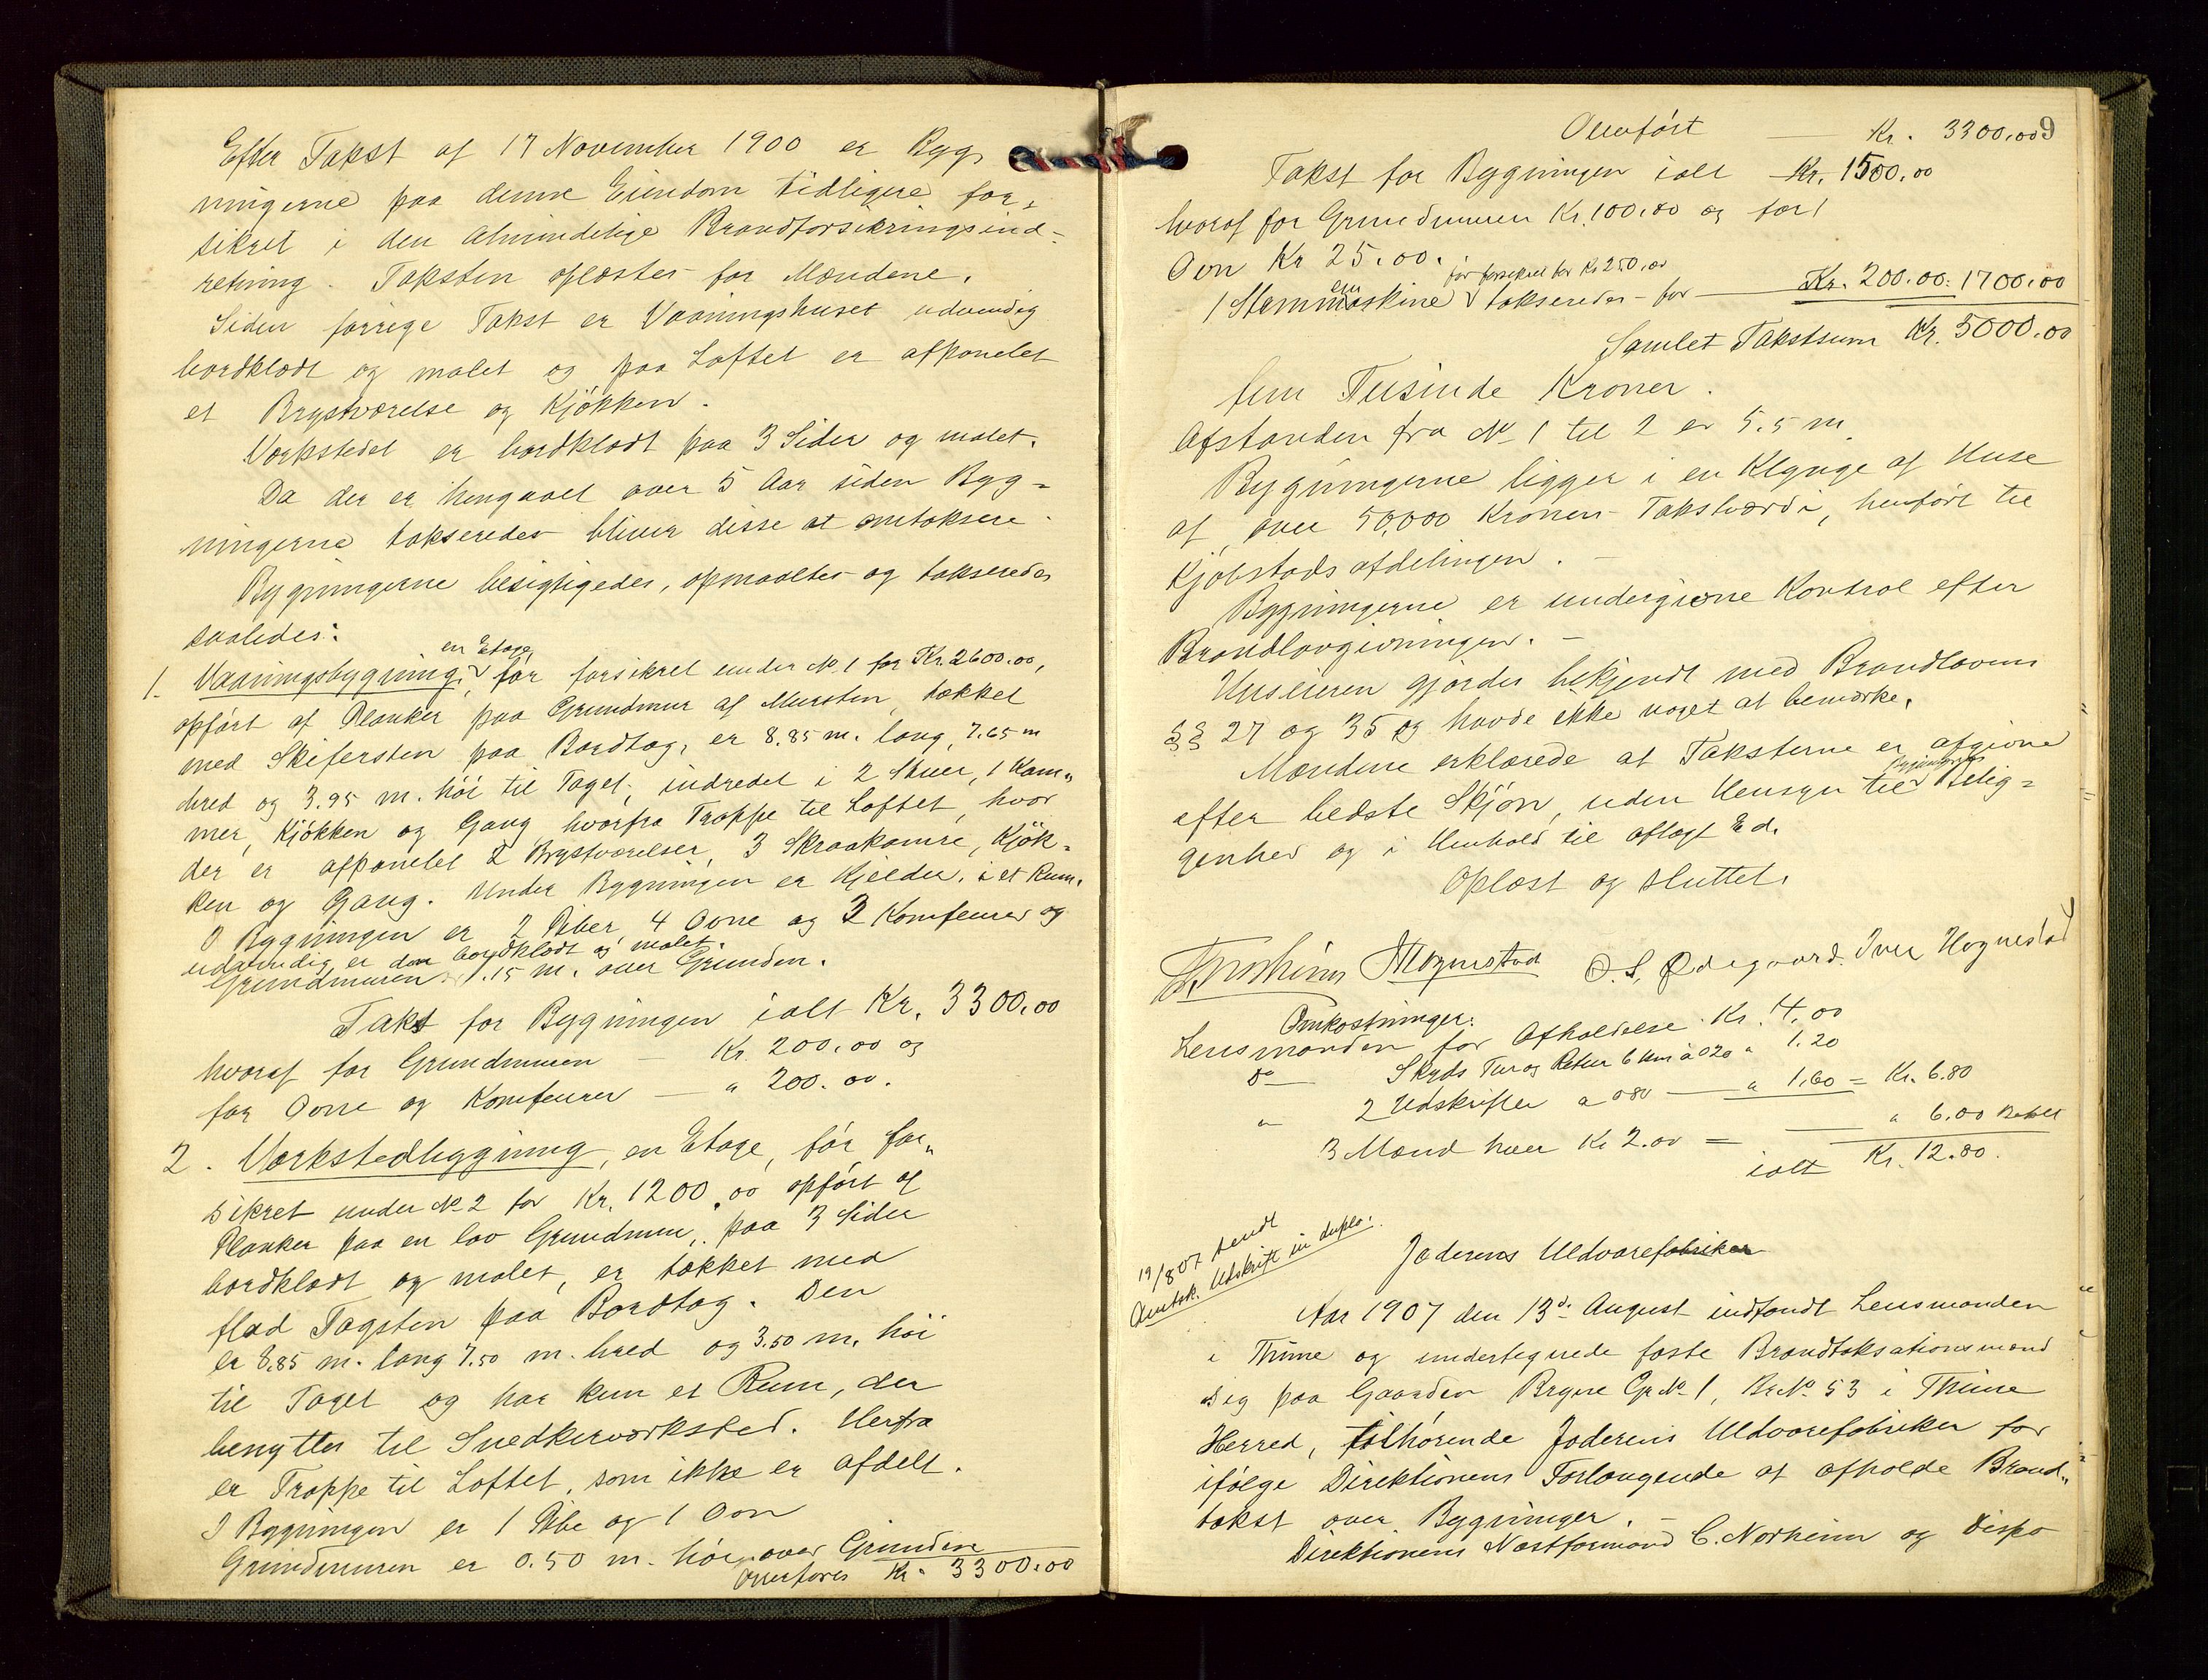 Efter Takst af 17 November 1900 er Byg-
ningerne paa denne Eiendom tidligere for-
sikret i den Almindelige Brandforsikringsind-
retning. Taksten oplæstes for Mændene.
Siden forrige Takst er Vaaningshuset udvendig
bordklædt og malet og paa Loftet er afpanelet
et Brystværelse og Kjøkken.
Værkstedet er bordklædt paa 3 Sider og malet.
Da der er hengaaet over 5 Aar siden Byg-
ningerne takseredes bliver disse at omtaksere.
Bygningerne besigtigedes, opmaaltes og takseredes
saaledes:
1. Vaaningsbygning, en Etage, før forsikret under No 1 for Kr. 2600.00,
opført af Planker paa Grundmur af Mursten, tækket
med Skifersten paa Bordtag, er 8.85 m. lang, 7.65 m
bred og 3.95 m. høi til Taget, indredet i 2 Stuer, 1 Kam-
mer, Kjøkken og Gang, hvorfra Trappe til Loftet, hvor
der er afpanelet 2 Brystværelser, 3 Skraakamre, Kjøk-
ken og Gang. Under Bygningen er Kjelder i et Rum.
I Bygningen er 2 Piber 4 Ovne og 2 Komfeurer og
udvendig er den bordklædt og malet.
Grundmuren 1.15 m. over Grunden.
Takst for Bygningen ialt Kr. 3300.00
hvoraf for Grundmuren — Kr. 200.00 og
for Ovne og Komfeurer — " 200.00.
2. Værkstedbygning, en Etage, før for-
sikret under No 2 for Kr. 1200.00 opført af
Planker paa en lav Grundmur, paa 3 Sider
bordklædt og malet, er tækket med
flad Tagsten paa Bordtag. Den
er 8.85 m. lang 7.50 m. bred og 3.50 m. høi
til Taget og har kun et Rum, der
benyttes til Snedkerværksted. Herfra
er Trappe til Loftet, som ikke er afdelt.
I Bygningen er 1 Pibe og 1 Ovn
Grundmuren er 0.50 m. høi over Grunden
Overføres Kr. 3300.00
9
Overført — Kr. 3300.00
Takst for Bygningen ialt Kr. 1500.00
hvoraf for Grundmuren Kr. 100.00 og for 1
Ovn Kr 25.00.
før forsikret for Kr 250.00
1 Stemmemaskine takseredes for — Kr. 200.00: 1700.00
Samlet Takstsum Kr. 5000.00
fem Tusinde Kroner.
Afstanden fra No 1 til 2 er 5.5 m.
Bygningerne ligger i en Klynge af Huse
af over 50,000 Kroners Takstværdi, henført til
Kjøbstadsafdelingen. —
Bygningerne er undergivne Kontrol efter
Brandlovgivningen. —
Huseieren gjordes bekjendt med Brandlovens
§§ 27 og 35 og havde ikke noget at bemærke.
Mændene erklærede at Taksterne er afgivne
efter bedste Skjøn, uden Hensyn til Bygningens Belig-
genhed og i Henhold til aflagt Ed.
Oplæst og sluttet.
Hognestad O. S. Ødegaard. Iver Hognestad
Omkostninger:
Lensmanden for Afholdelse Kr. 4.00
Do — Skyds Tur og Retur 6 km à 020 " 1.20
" 2 Udskrifter a 080 — " 1.60 = Kr. 6.80
3 Mænd hver Kr 2.00 = — " 6.00 Betalt
ialt Kr. 12.80.
19/8 07 sendt
Amtsk. Udskrift in duplo.
Jæderens Uldvarefabriker
Aar 1907 den 13de August indfandt Lensmanden
i Thime og undertegnede faste Brandtaksationsmænd
sig paa Gaarden Bryne Gr No 1, Br No 53 i Thime
Herred, tilhørende Jæderens Uldvarefabriker for
ifølge Direktionens Forlangende at afholde Brand-
takst over Bygninger. —
Direktionens Næstformand C. Norheim og Dispo